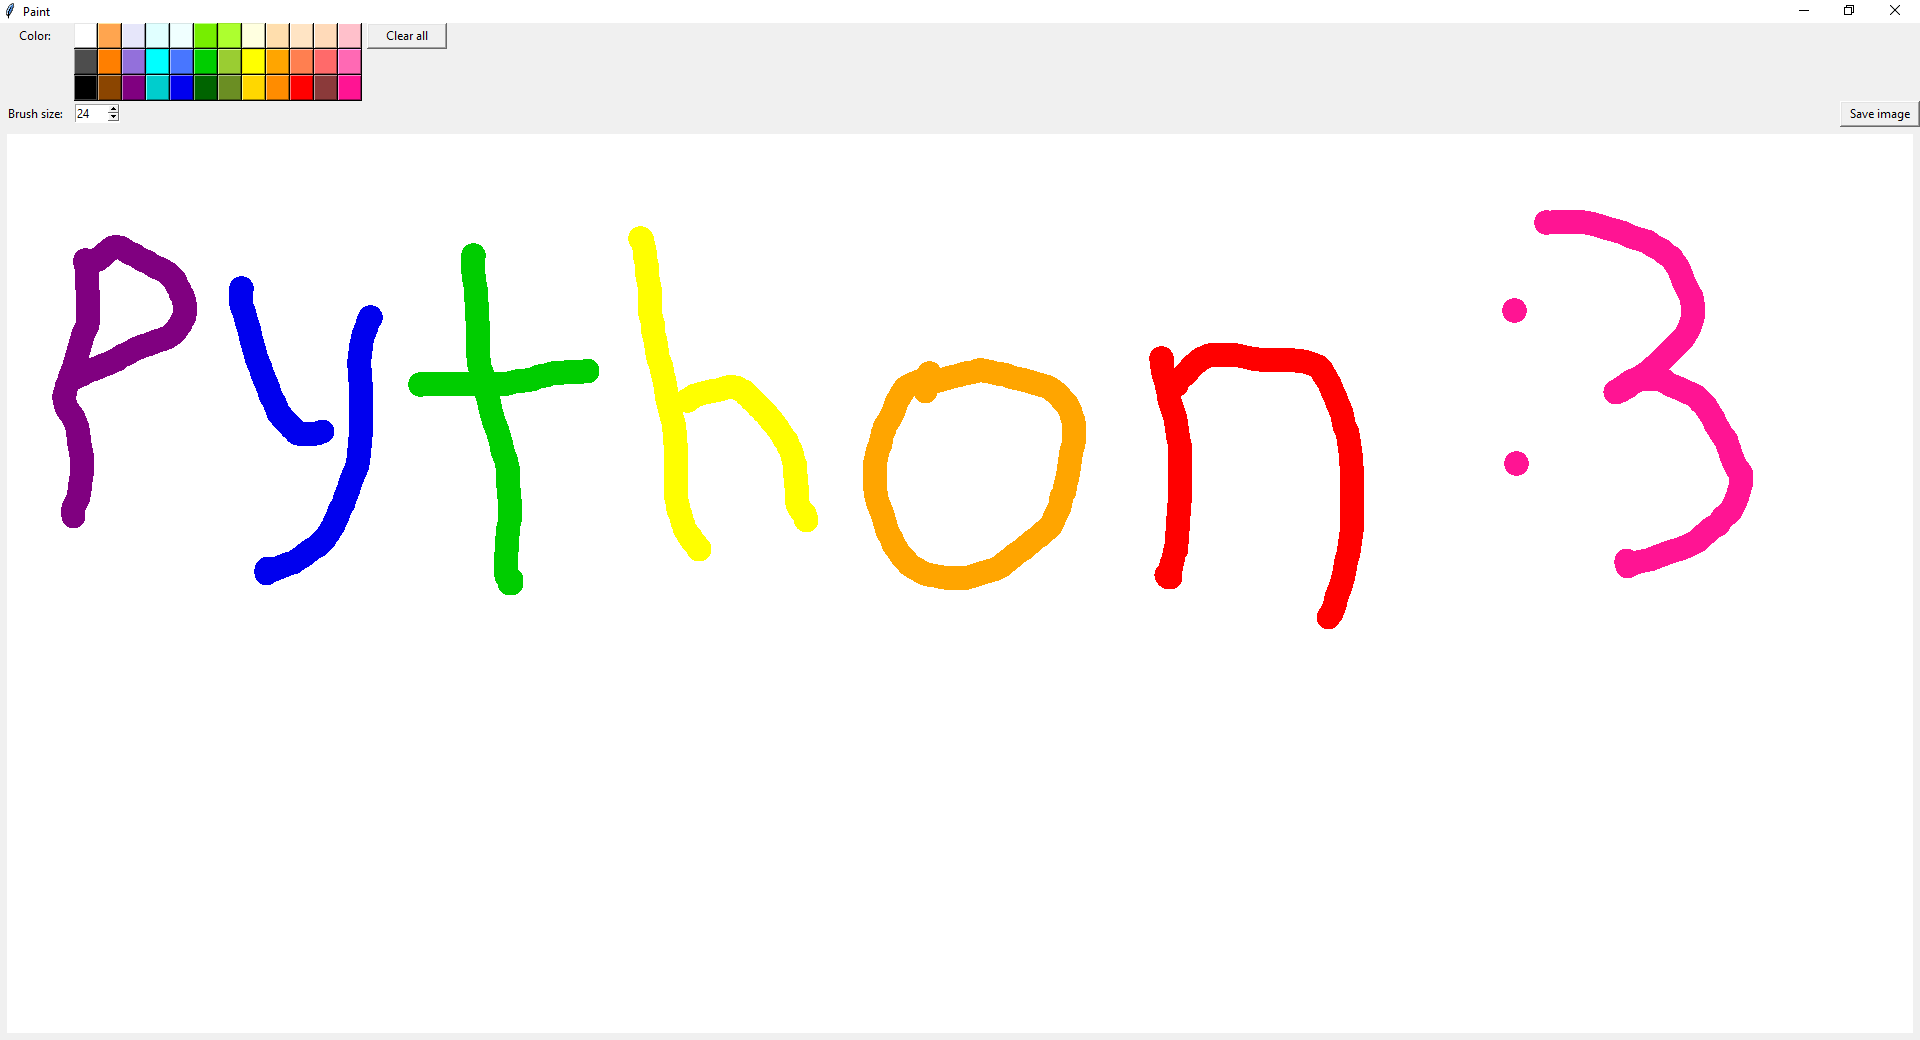 Paint
Color: Clear all
Brush size: 24 Save image
Python :3